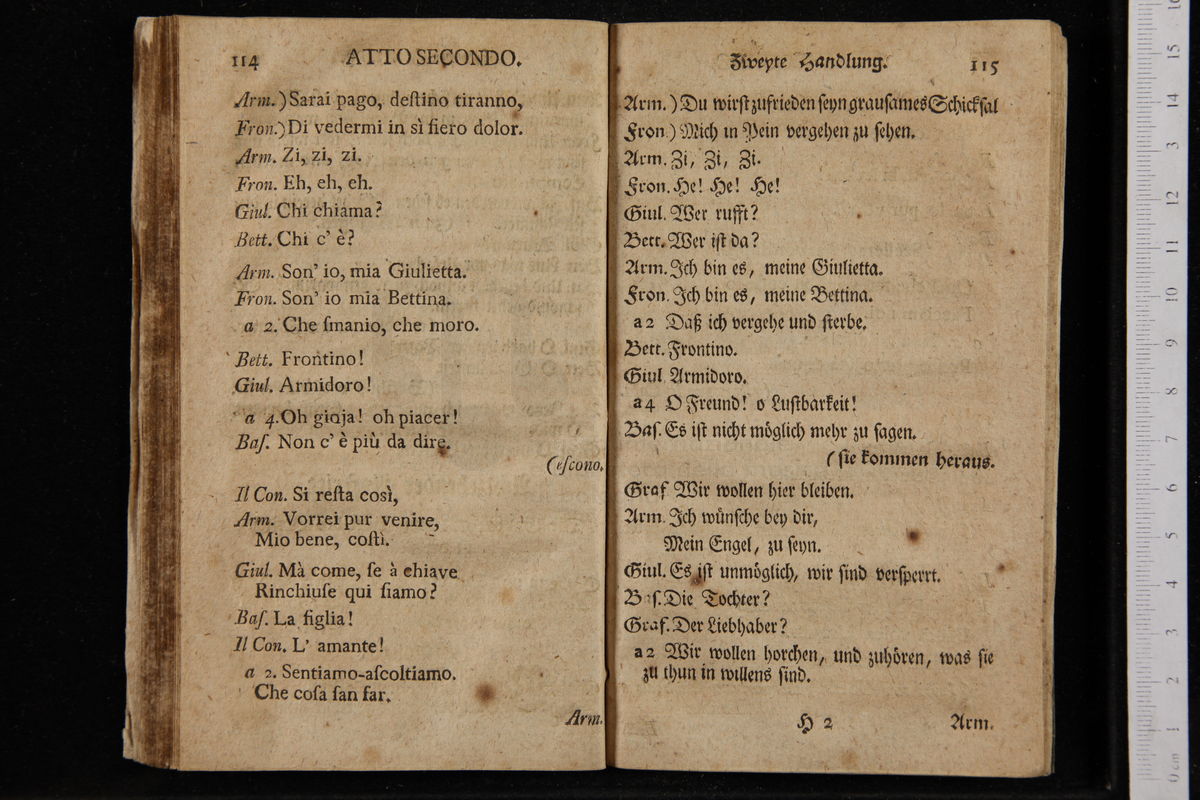 114 ATTO SECONDO.
Arm.) Sarai pago, deſtino tiranno,
Fron.) Di vedermi in sì fiero dolor.
Arm. Zi, zi, zi.
Fron. Eh, eh, eh.
Giul. Chi chiama?
Bett. Chi c' è?
Arm. Son' io, mia Giulietta.
Fron. Son' io mia Bettina.
a 2. Che ſmanio, che moro.
Bett. Frontino!
Giul. Armidoro!
a 4. Oh gioja! oh piacer!
Baſ. Non c' è più da dire.
(eſcono.
Il Con. Si reſta così,
Arm. Vorrei pur venire,
Mio bene, coſtì.
Giul. Mà come, ſe à chiave
Rinchiuſe qui ſiamo?
Baſ. La figlia!
Il Con. L' amante!
a 2. Sentiamo-aſcoltiamo.
Che coſa ſan far.
Arm.
Zweyte Handlung. 115
Arm.) Du wirſt zufrieden ſeyn grauſames Schickſal
Fron) Mich in Pein vergehen zu ſehen.
Arm. Zi, Zi, Zi.
Fron. He! He! He!
Giul. Wer rufft?
Bett. Wer iſt da?
Arm. Ich bin es, meine Giulietta.
Fron. Ich bin es, meine Bettina.
a 2 Daß ich vergehe und ſterbe.
Bett. Frontino.
Giul Armidoro.
a 4 O Freund! o Luſtbarkeit!
Baſ. Es iſt nicht möglich mehr zu ſagen.
(ſie kommen heraus.
Graf Wir wollen hier bleiben.
Arm. Ich wünſche bey dir,
Mein Engel, zu ſeyn.
Giul. Es iſt unmöglich, wir ſind verſperrt.
Baſ. Die Tochter?
Graf. Der Liebhaber?
a 2 Wir wollen horchen, und zuhören, was ſie
zu thun in willens ſind.
H 2 Arm.